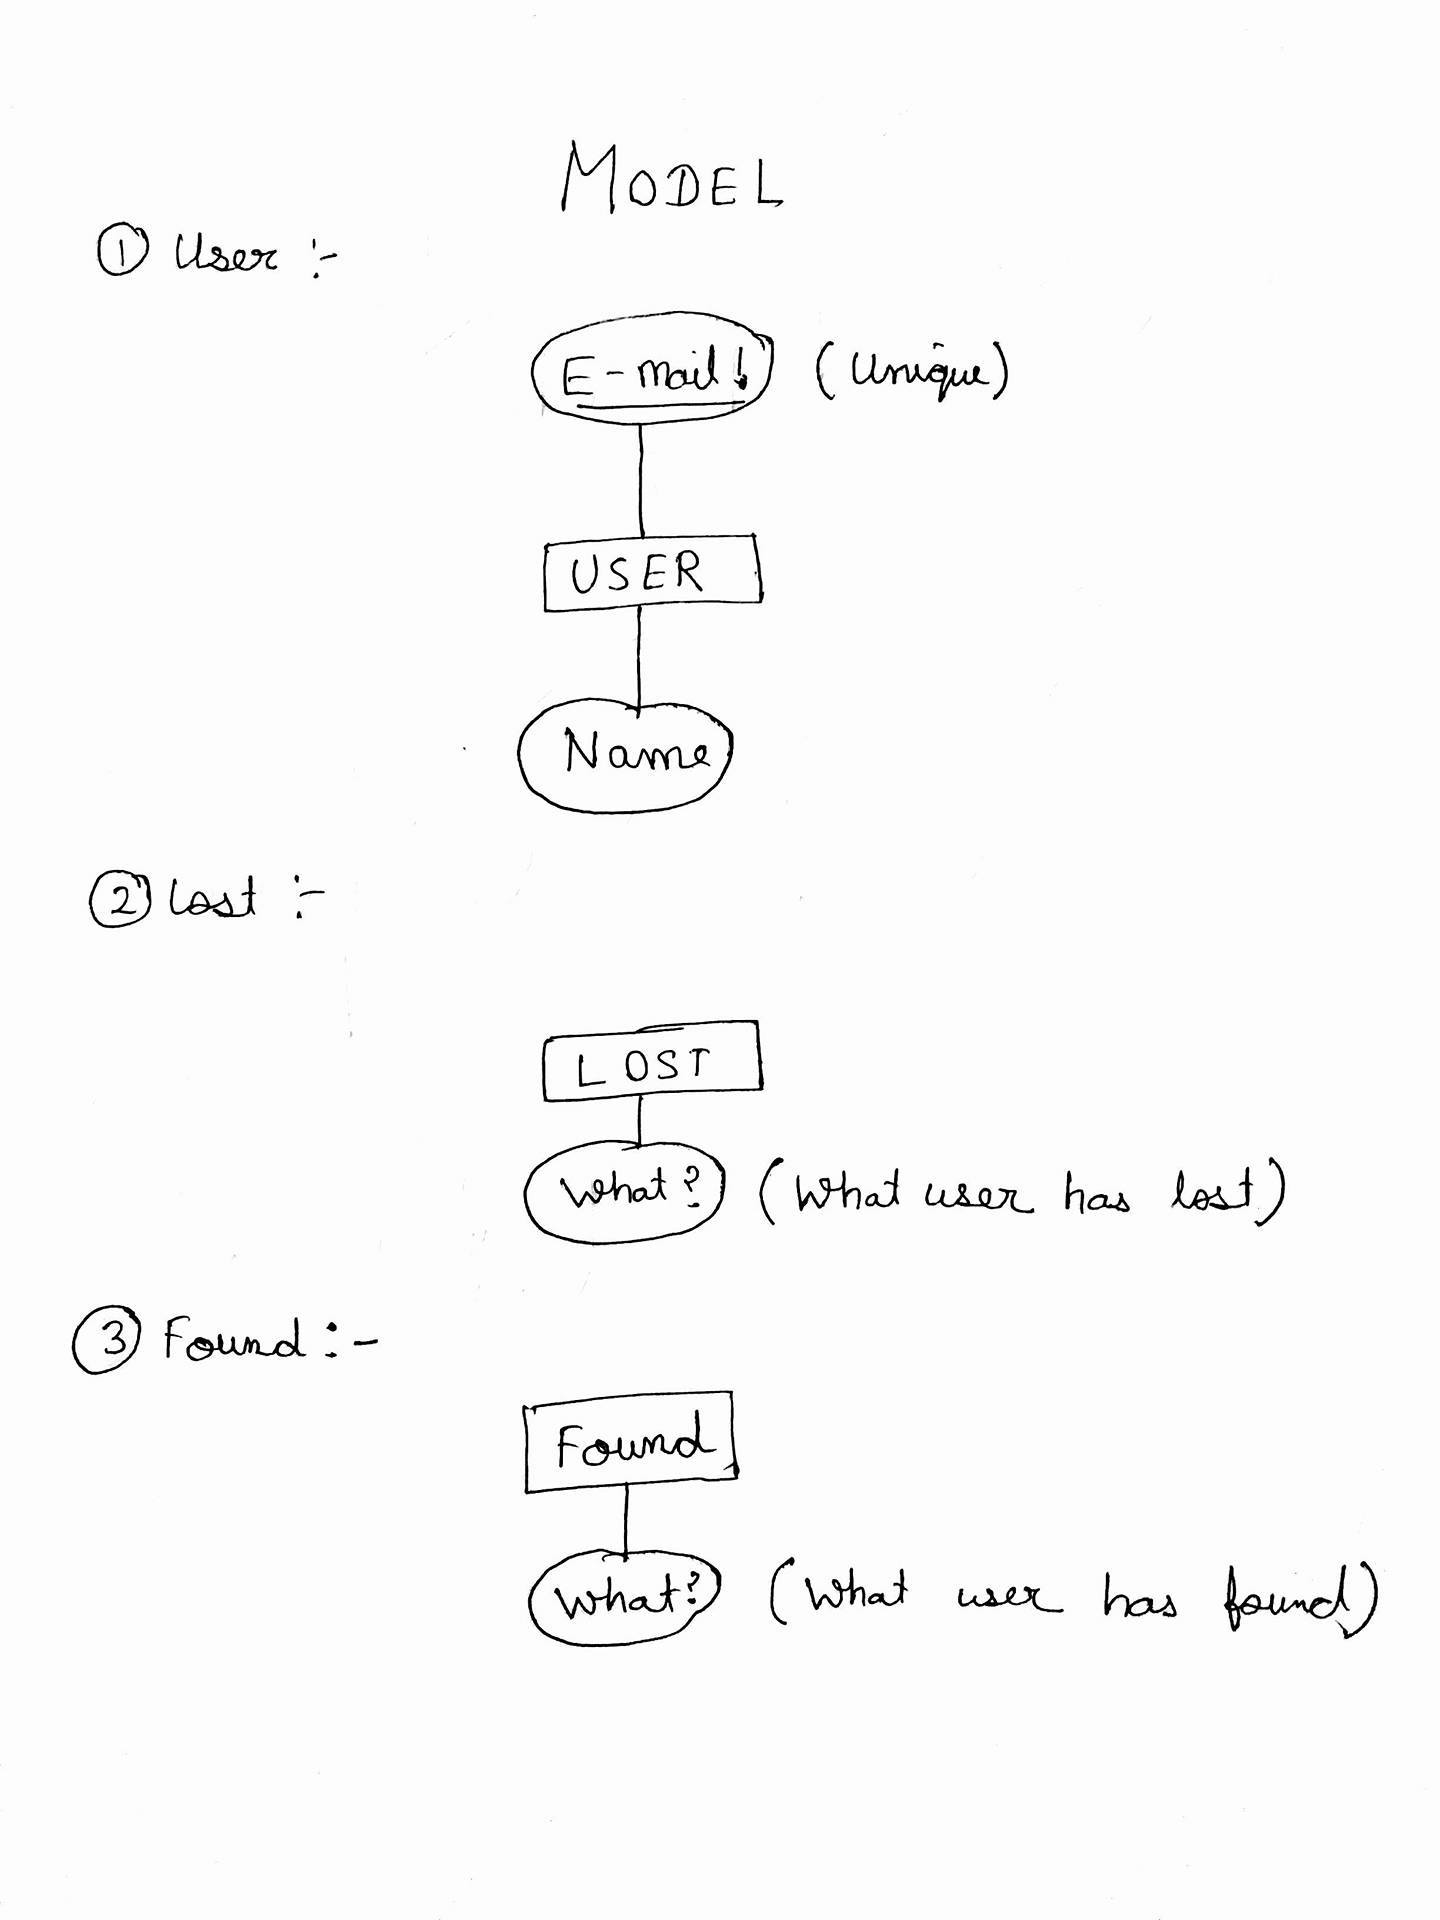 MODEL
① User :-
E-mail! (Unique)
USER
Name
② Lost :-
LOST
What? (What user has lost)
③ Found :-
Found
What? (What user has found)